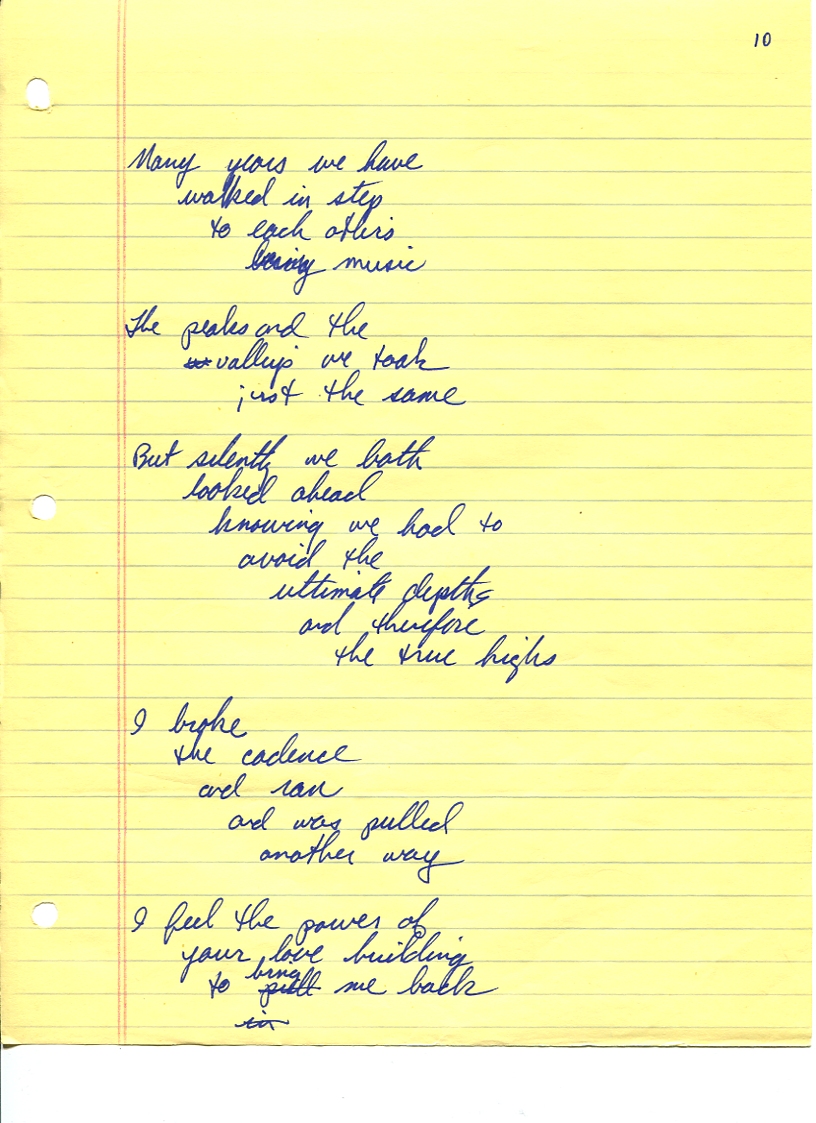 10
Many years we have
walked in step
to each others
music
The peaks and the
valleys we took
just the same
But silently we both
looked ahead
knowing we had to
avoid the
ultimate depths
and therefore
the true highs
I broke
the cadence
and ran
and was pulled
another way
I feel the power of
your love building
to bring pull me back
in